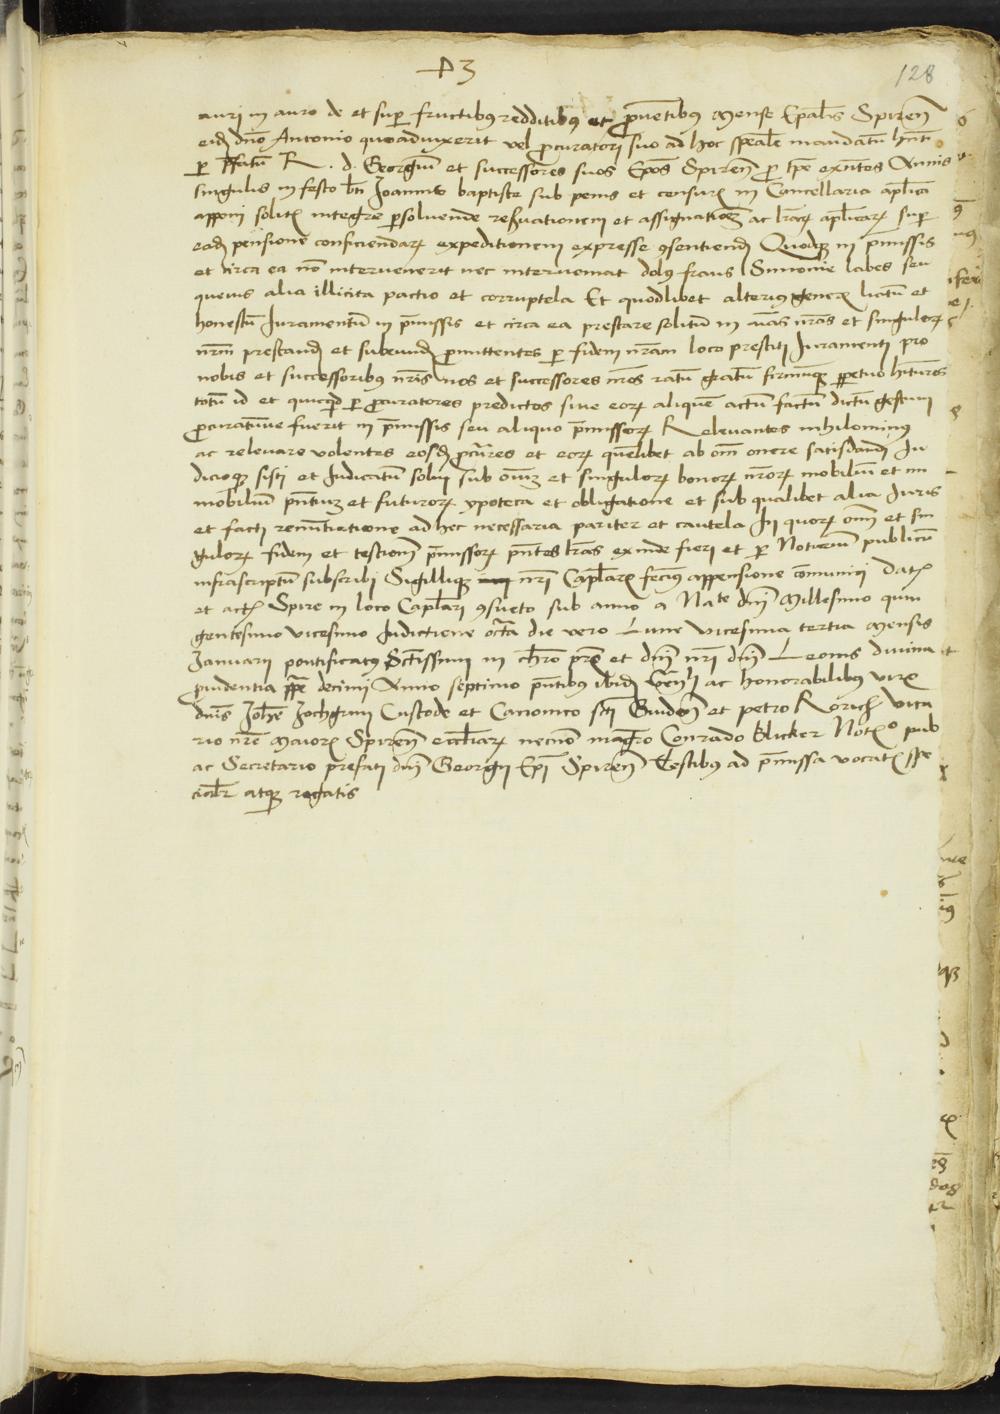 128
auri in auro de et super fructibus redditibus et proventibus mense Epalis Spiren
eidem dno Antonio quoadvixerit vel procuratori suo ad hoc speciale mandatum hnti
per R. d. Georgium et successores suos Epos Spiren pro tpe existentes Annis
singulis in festo bti Joannis baptiste sub penis et censuris in Cancellaria aplica
apponi solitis integre persolvende reservationem et assignationem ac lrarum aplicarum super
eadem pensione conficiendarum expeditionem expresse consentiendum Quodque in premissis
et circa ea non intervenerit nec interveniat dolus fraus Simonie labes seu
quevis alia illicita pactio et corruptela Et quodlibet alterius generis licitum et
honestum Juramentum in premissis et circa ea prestare solitum in aias nras et singulorum
nrm prestandum et subeundum promittentes per fidem nram loco prestiti Juramenti pro
nobis et successoribus nris nos et successores nros ratum gratum firmumque perpetuo habituros
totum id et quicquid per procuratores predictos sive eorum aliquem actum factum dictum gestum
procuratumve fuerit in premissis seu aliquo premissorum Relevantes nihilominus
ac relevare volentes eosdem procuratores et eorum quemlibet ab omni onere satisdandi Ju
dicioque sisti et Judicatum solvi sub omnium et singulorum bonorum nrorum mobilium et im
mobilium pntium et futurorum ypoteca et obligatione et sub qualibet alia Juris
et facti renuntiatione ad hec necessaria pariter et cautela In quorum omnium et sin
gulorum fidem et testimonium premissorum pntes lras exinde fieri et per Notarium publicum
infrascriptum subscribi Sigillique nri Caplaris fecimus appensione communiri Datum
et actum Spire in loco Caplari consueto sub anno a Nate dni Millesimo quin
gentesimo vicesimo Indictione octava die vero Lune vicesima tertia mensis
Januarii pontificatus Sctissimi in christo pris et dni nri dni Leonis divina
providentia ppe decimi Anno septimo pntibus ibidem ac honorabilibus viris
dnis Johe Custode et Canonico sti Guidonis et petro Rorich vica
rio nre Maioris Spiren eccliarum necnon magro Conrado Blicker Notario pub
ac Secretario prefati dni Georgii Epi Spiren Testibus ad premissa vocatis spe
cialiter atque rogatis